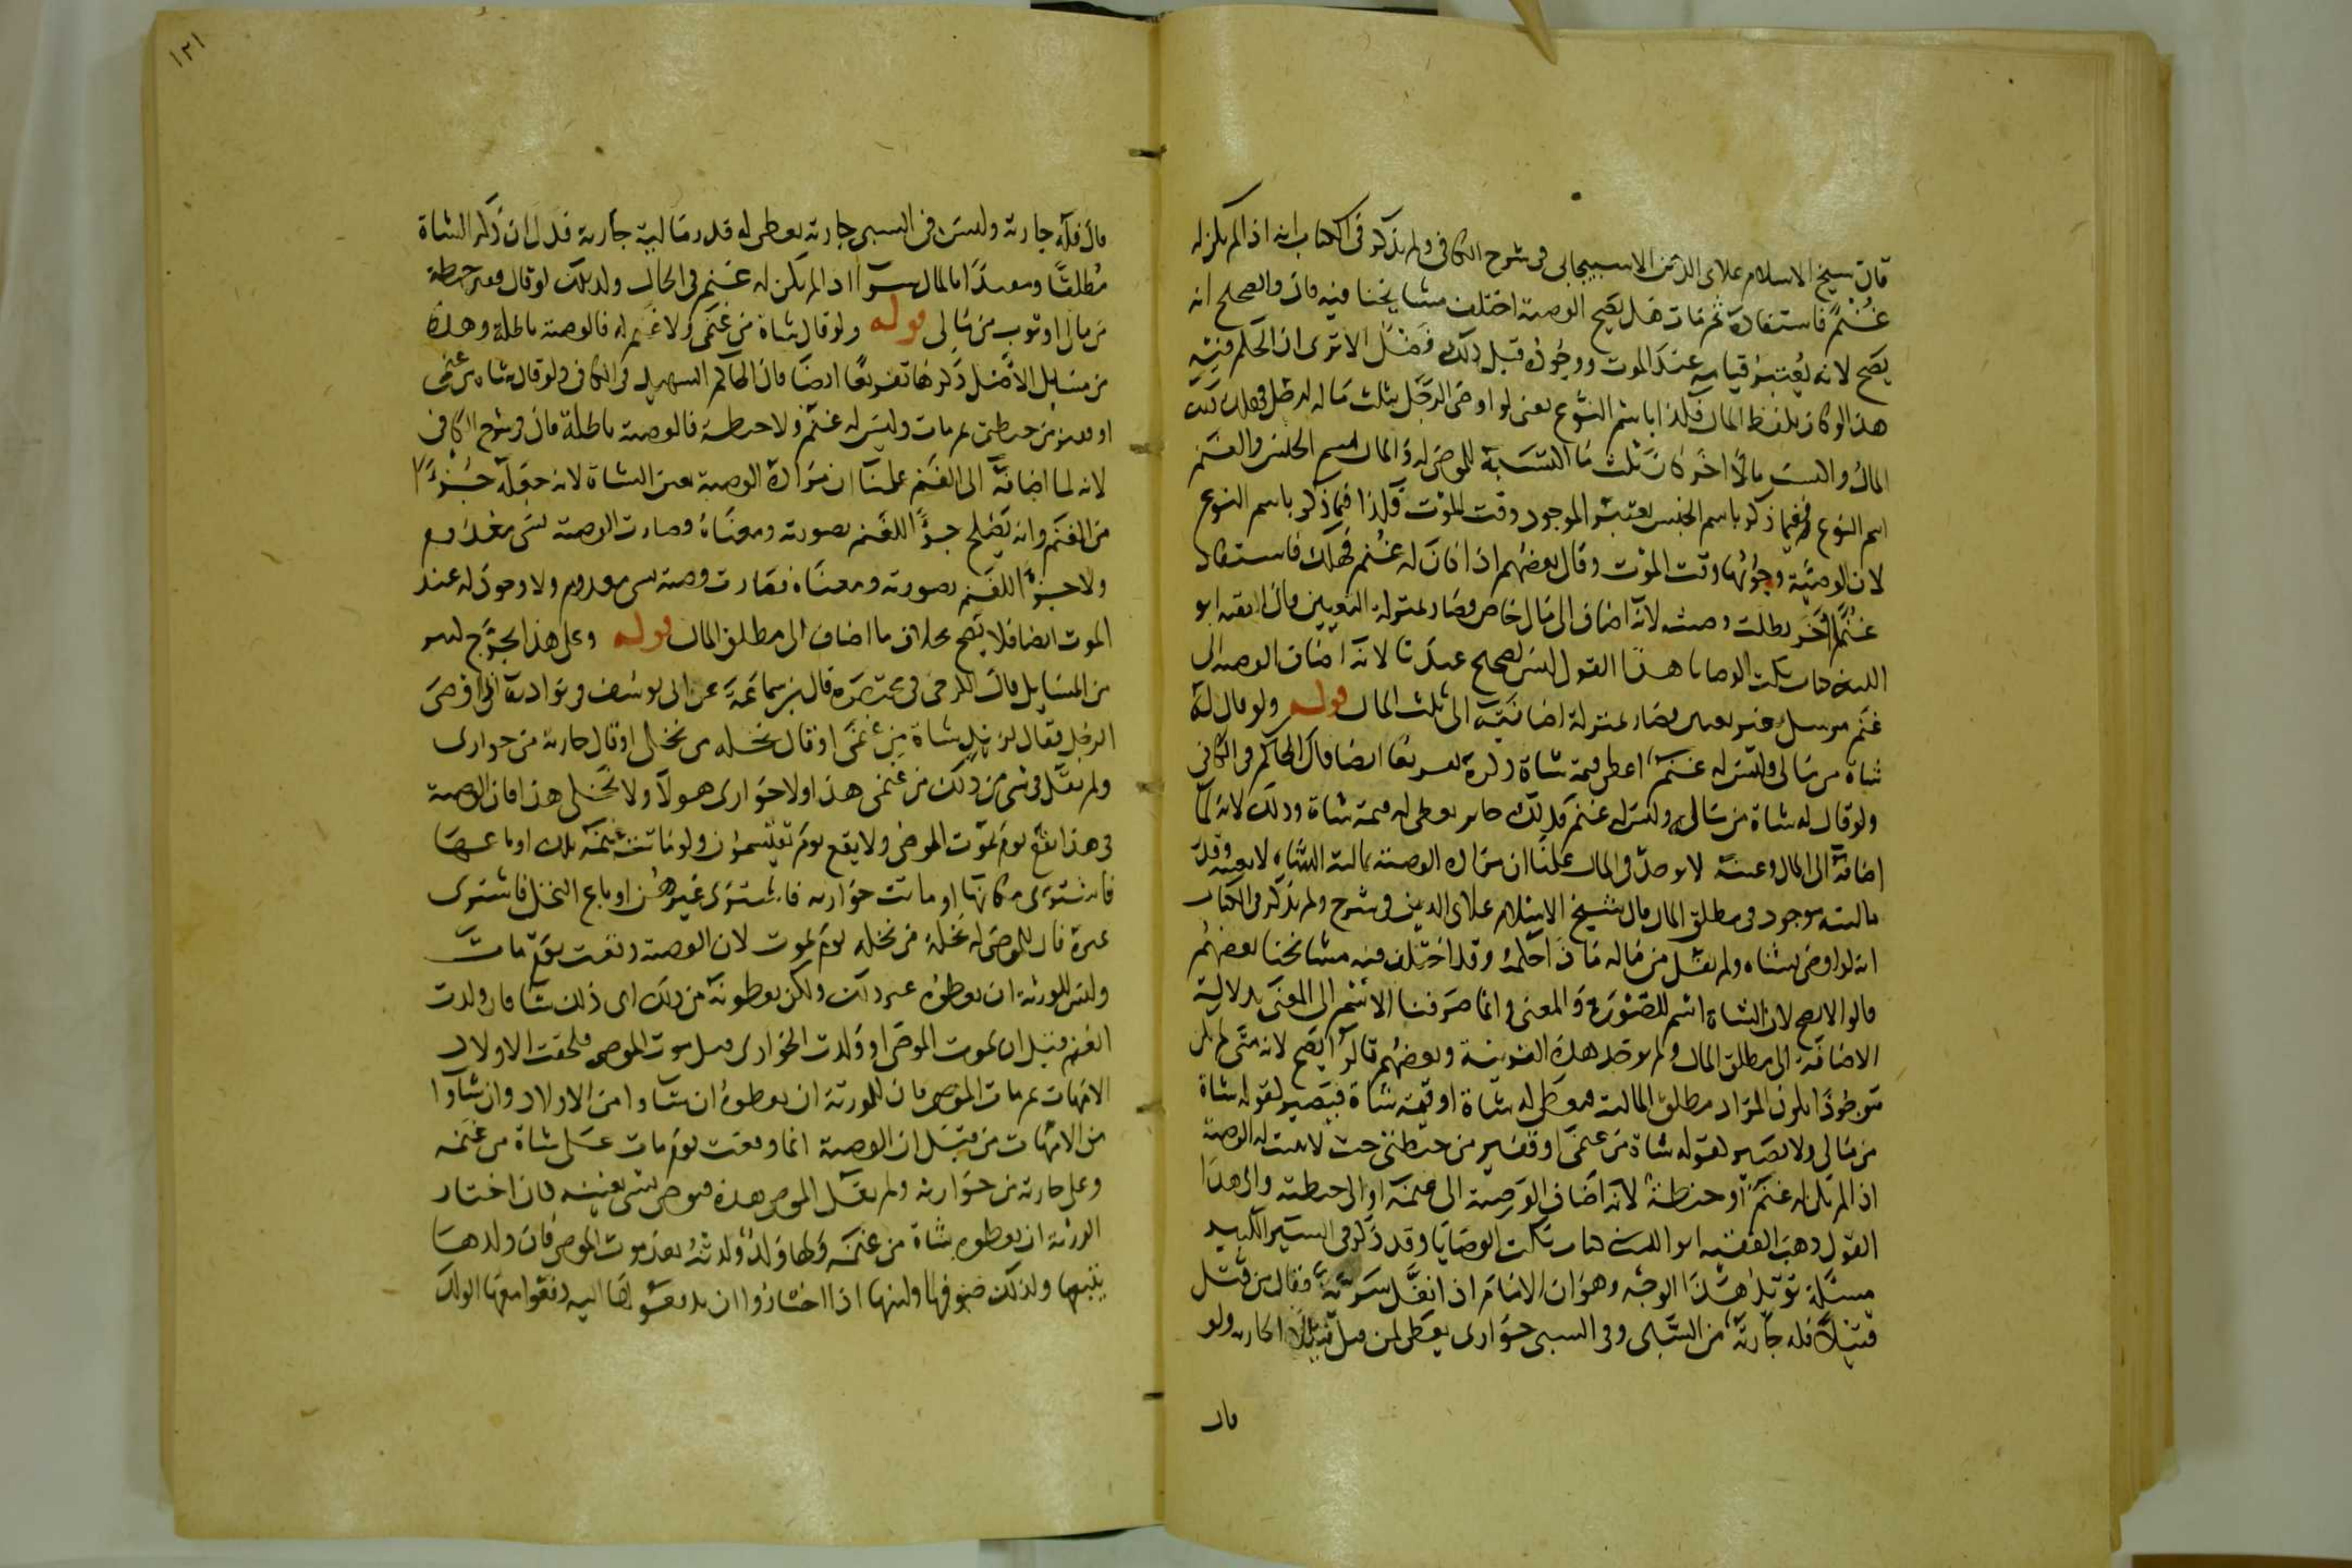 قال شيخ الاسلام علاى الدين الاسبيجابى فى شرح الكافى ولم يذكر فى الكتاب انه اذا لم يكن له
غنم فاستفاد ثم مات هل يصح الوصية اختلف مشايخنا فيه قال والصحيح انه
يصح لانه يعتبر قيامه عند الموت ووجوده قبل ذلك فضل الا ترى ان الحكم فيه
هذا لو كان بلفظ المال فكذا باسم النوع يعنى لو اوصى الرجل بثلث ماله لرجل فهلك ذلك
المال واكتسب مالا اخر كان ثلث ما اكتسبه للموصى له والمال اسم الجنس والغنم
اسم النوع ففيما ذكر باسم الجنس يعتبر الموجود وقت الموت فكذا فيما ذكر باسم النوع
لان الوصية وجوبها وقت الموت وقال بعضهم اذا كان له غنم فهلك فاستفاد
غنما اخر بطلت وصيته لانه اضاف الى مال خاص فصار بمنزلة التعيين قال الفقيه ابو
الليث فى كتاب نكت الوصايا هذا القول ليس بصحيح عندنا لانه اضاف الوصية الى
غنم مرسل غير معين فصار بمنزلة اضافته الى ثلث المال قوله ولو قال له
شاة من مالى وليس له غنم اعطى قيمة شاة ذكره تفريعا ايضا قال الحاكم فى الكافى
ولو قال له شاة من مالى وليس له غنم فذلك جايز يعطى له قيمة شاة وذلك لانه لما
اضافه الى المال وعينه لا يوجد فى المال علمنا ان مراده الوصية بمالية الشاة لا بعينه وقد
ماليته موجود فى مطلق المال قال شيخ الاسلام علاى الدين فى شرح ولم يذكر فى الكتاب
انه لو اوصى بشاة ولم يقل من ماله ماذا حكمه وقد اختلف فيه مشايخنا بعضهم
قالوا لا يصح لان الشاة اسم للصورة والمعنى وانما صرفنا الاسم الى المعنى بدلالة
الاضافة الى مطلق المال ولم يوجد هذه القرينة وبعضهم قالوا يصح لانه متى لم يكن
موجودا يكون المراد مطلق المالية فيعطى له شاة او قيمة شاة فيصير كقوله شاة
من مالى ولا يصير كقوله شاة من غنمى او قفيز من حنطتى حيث لا يثبت له الوصية
اذا لم يكن له غنم او حنطة لانه اضاف الوصية الى غنمه او الى حنطته والى هذا
القول ذهب الفقيه ابو الليث فى كتاب نكت الوصايا وقد ذكر فى السير الكبير
مسئلة تؤيد هذا الوجه وهو ان الامام اذا نفل سرية فقال من قتل
قتيلا فله جارية من السبى وفى السبى جوارى يعطى لمن قتل قتيلا الجارية ولو
قال
١٢١
قال فله جارية وليس فى السبى جارية يعطى له قدر مالية جارية فدل ان ذكر الشاة
مطلقا ومقيدا بالمال سوا اذا لم يكن له غنم فى الحال وكذلك لو قال قفيز حنطة
من مالى او ثوب من مالى قوله ولو قال شاة من غنمى ولا غنم له فالوصية باطلة وهذه
من مسايل الاصل ذكرها تفريعا ايضا قال الحاكم الشهيد فى الكافى ولو قال شاة من غنمى
او قفيز من حنطتى ثم مات وليس له غنم ولا حنطة فالوصية باطلة قال فى شرح الكافى
لانه لما اضافه الى الغنم علمنا ان مراده الوصية بعين الشاة لانه جعله جزءا
من الغنم وانه يصلح جزءا للغنم بصورته ومعناه وصارت الوصية بشى معدوم
ولا جزءا للغنم بصورته ومعناه فصارت وصية بشى معدوم ولا وجود له عند
الموت ايضا فلا يصح بخلاف ما اضاف الى مطلق المال قوله وعلى هذا يخرج كثير
من المسايل قال الكرخى فى مختصره قال بن سماعة عن ابى يوسف فى نوادره اذا اوصى
الرجل فقال لزيد شاة من غنمى او قال نخلة من نخلى او قال جارية من جوارى
ولم يقل فى شى من ذلك من غنمى هذا او لا جوارى هولا ولا نخلى هذا فان الوصية
فى هذا تقع يوم يموت الموصى ولا يقع يوم يقتسمون ولو ماتت غنمه تلك او باعها
فاشترى مكانها او ماتت جواريه فاشترى غيرهن او باع النخل فاشترى
غيره فان للموصى له نخلة من نخله يوم يموت لان الوصية وقعت يوم مات
وليس للورثة ان يعطوه غير ذلك ولكن يعطونه من ذلك اى ذلك شا فان ولدت
الغنم قبل ان يموت الموصى او ولدت الجوارى قبل موت الموصى فلحقت الاولاد
الامهات ثم مات الموصى فان للورثة ان يعطوه ان شاوا من الاولاد وان شاوا
من الامهات من قبل ان الوصية انما وقعت يوم مات على شاة من غنمه
وعلى جارية من جواريه ولم يقل الموصى هذه فيوصى بشى بعينه فان اختار
الورثة ان يعطوه شاة من غنمه ولها ولد ولدته بعد موت الموصى فان ولدها
يتبعها وكذلك صوفها ولبنها اذا اختاروا ان يدفعوها اليه دفعوا معها الولد